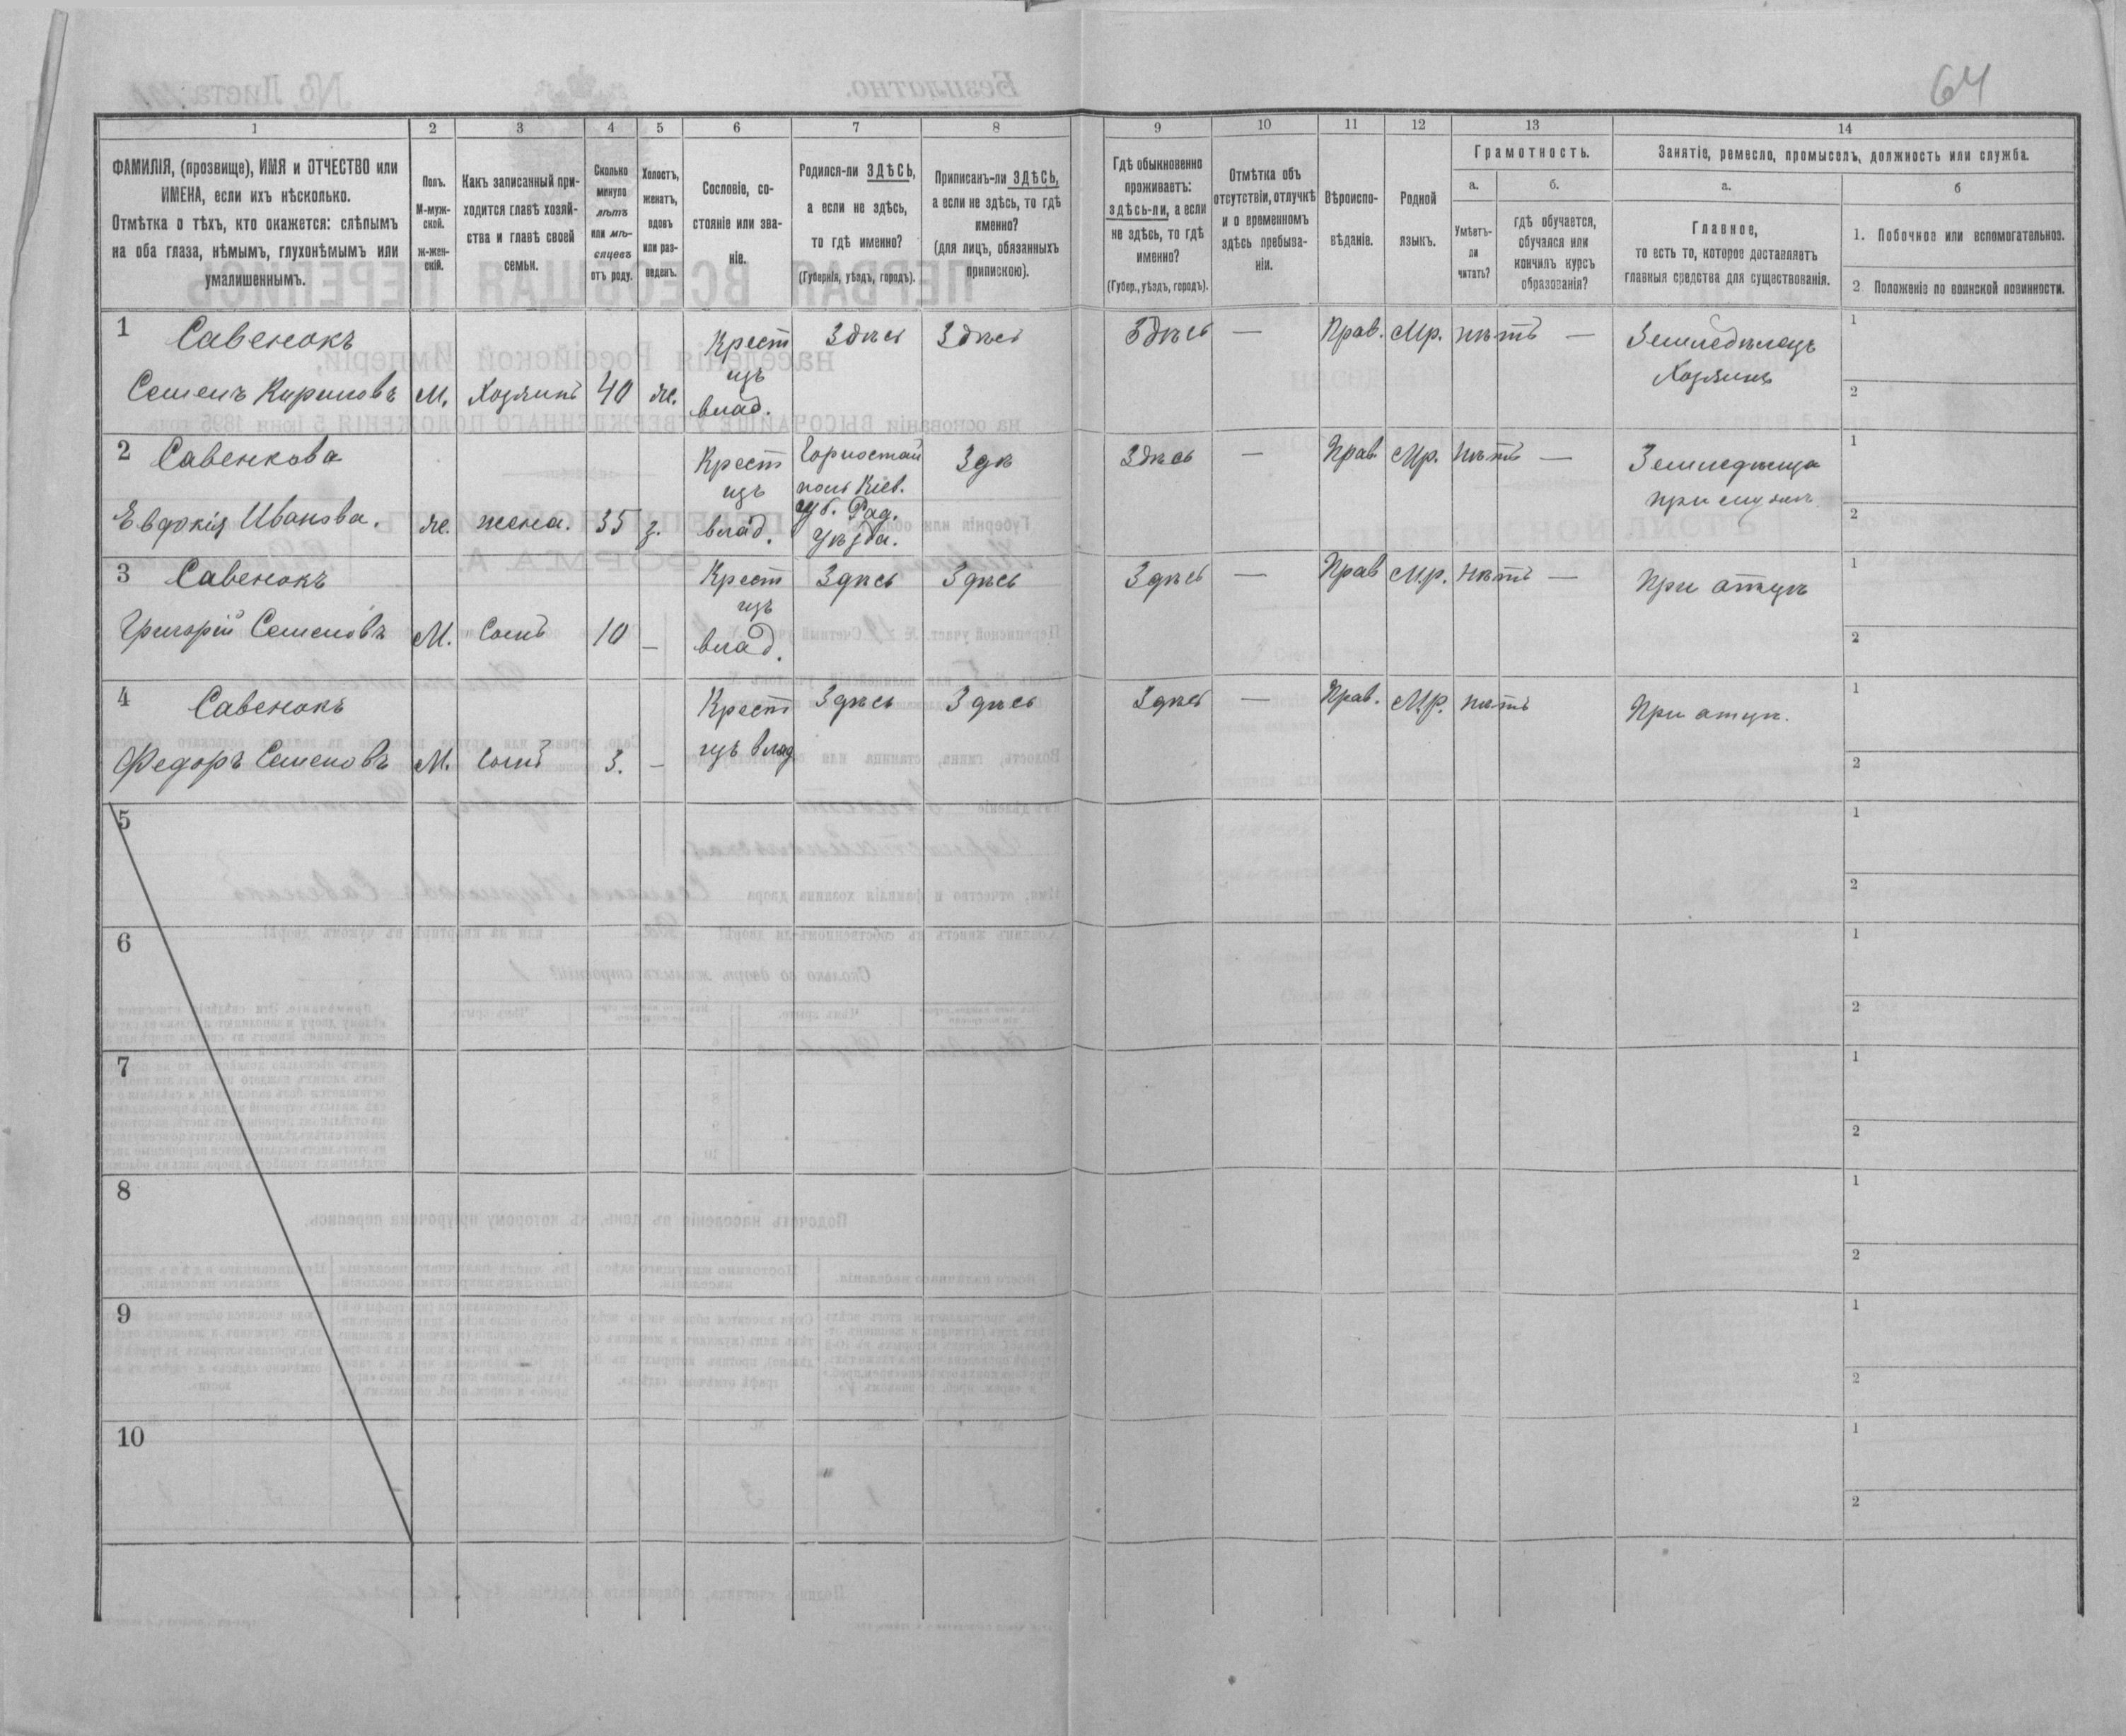 64
1 2 3 4 5 6 7 8 9 10 11 12 13 14
ФАМИЛІЯ, (прозвище), ИМЯ и ОТЧЕСТВО или
ИМЕНА, если ихъ нѣсколько.
Отмѣтка о тѣхъ, кто окажется: слѣпымъ
на оба глаза, нѣмымъ, глухонѣмымъ или
умалишеннымъ.
Полъ.
М-муж-
ской.
ж-жен-
скій.
Какъ записанный при-
ходится главѣ хозяй-
ства и главѣ своей
семьи.
Сколько
минуло
лѣтъ
или мѣ-
сяцевъ
отъ роду.
Холостъ,
женатъ,
вдовъ
или раз-
веденъ.
Сословіе, со-
стояніе или зва-
ніе.
Родился-ли ЗДѢСЬ,
а если не здѣсь,
то гдѣ именно?
(Губернія, уѣздъ, городъ).
Приписанъ-ли ЗДѢСЬ,
а если не здѣсь, то гдѣ
именно?
(для лицъ, обязанныхъ
припискою).
Гдѣ обыкновенно
проживаетъ:
здѣсь-ли, а если
не здѣсь, то гдѣ
именно?
(Губер., уѣздъ, городъ).
Отмѣтка объ
отсутствіи, отлучкѣ
и о временномъ
здѣсь пребыва-
ніи.
Вѣроиспо-
вѣданіе.
Родной
языкъ.
Грамотность.
а.
Умѣетъ-
ли
читать?
б.
гдѣ обучается,
обучался или
кончилъ курсъ
образованія?
Занятіе, ремесло, промыселъ, должность или служба.
а.
Главное,
то есть то, которое доставляетъ
главныя средства для существованія.
б
1. Побочное или вспомогательное.
2 Положеніе по воинской повинности.
1 Савенокъ
Семенъ Кириловъ М. Хозяинъ 40 ж.
Крест
изъ
влад.
Здѣсь Здѣсь Здѣсь — Прав. Мр. нѣтъ —
Земледѣлецъ
Хозяинъ
1
2
2 Савенкова
Евдокія Иванова. ж. жена. 35 з.
Крест
изъ
влад.
Горностай
поль Кіев.
губ. Рад.
уѣзда.
Здѣ Здѣсь — Прав. Мр. Нѣтъ —
при мужѣ
1
2
3 Савенокъ
Григорій Семеновъ М. Сынъ 10 —
Крест
изъ
влад.
Здѣсь Здѣсь Здѣсь — Прав М.р. нѣтъ —
При отцѣ
1
2
4 Савенокъ
Федоръ Семеновъ М. Сынъ 3. —
Крест
изъ влад
Здѣсь Здѣсь Здѣсь — Прав. М.р. нѣтъ
При отцѣ.
1
2
5
1
2
6
1
2
7
1
2
8
1
2
9
1
2
10
1
2